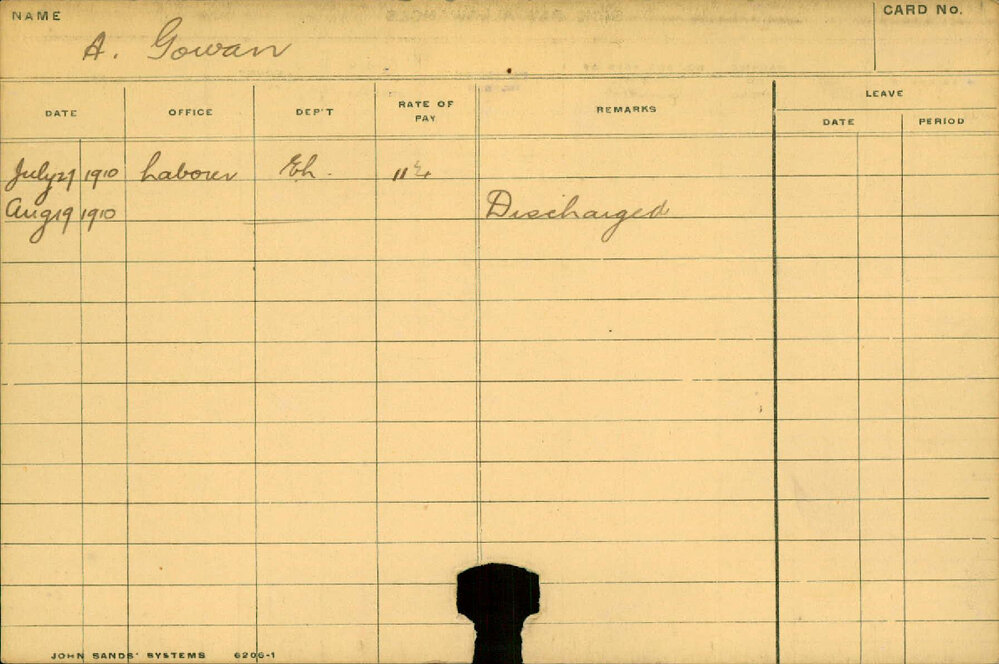 NAME
A. Gowan
CARD No.
DATE OFFICE DEP'T RATE OF PAY REMARKS LEAVE
DATE PERIOD
July 27 1910 Laborer Eh.
Aug 19 1910 Discharged
JOHN SANDS' SYSTEMS 6206-1